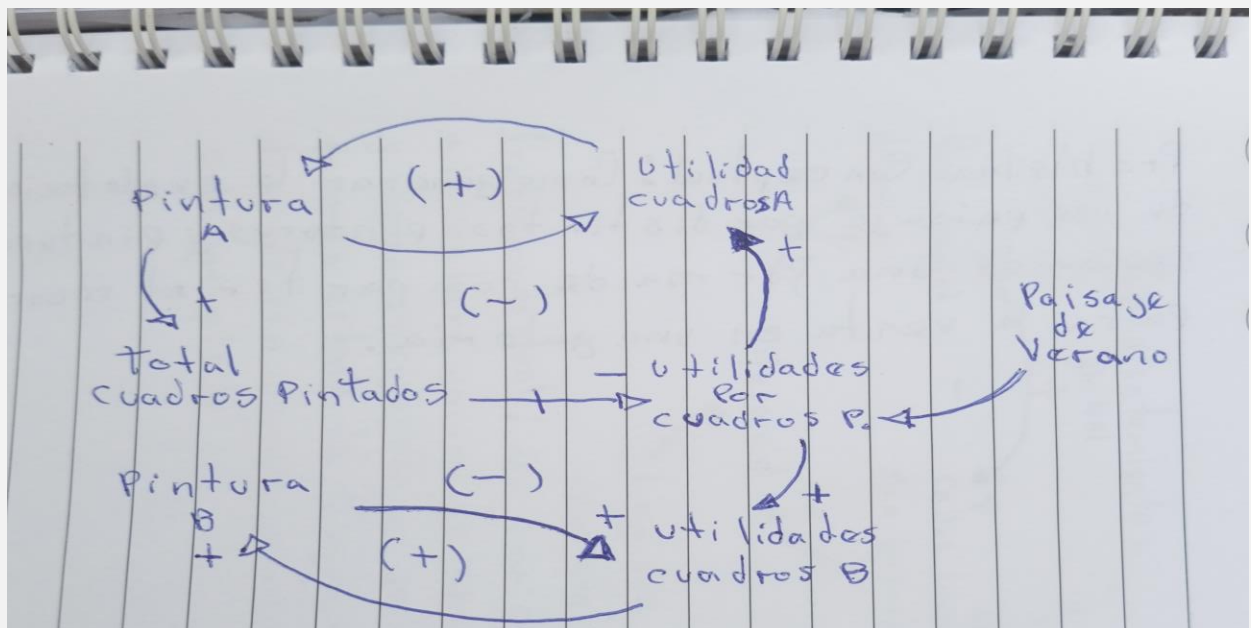 (+)
Pintura
A
utilidad
cuadrosA
+
+
(-)
Paisaje
de
Verano
Total
cuadros Pintados
-
utilidades
Por
cuadros P.
+
Pintura
B
+
(-)
(+)
+
utilidades
cuadros B